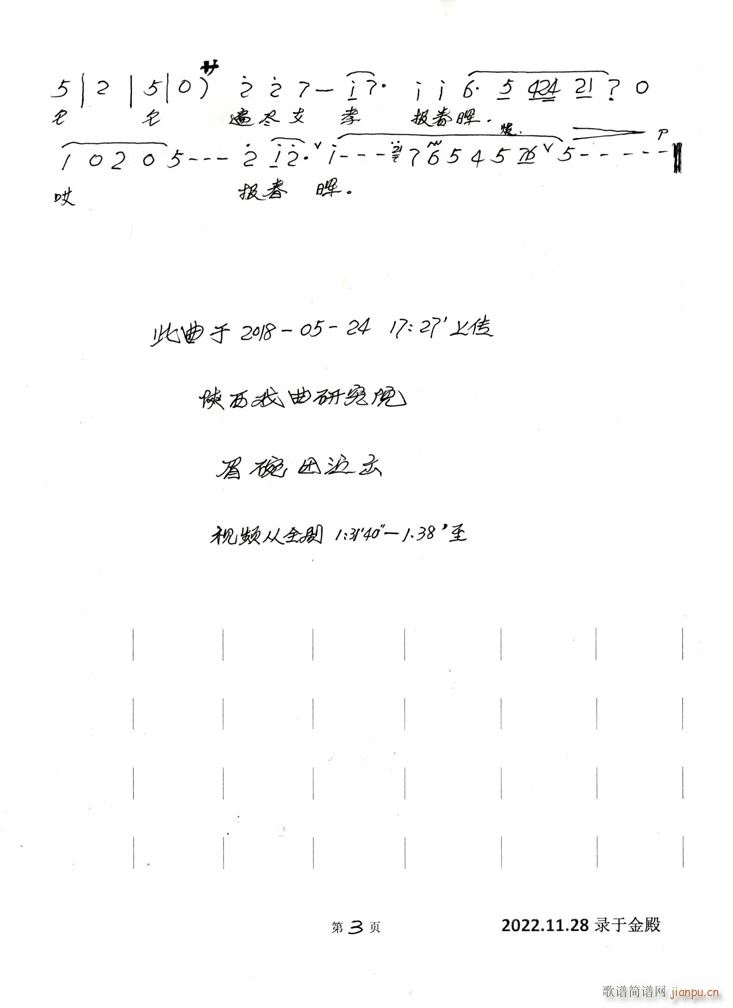 5 | 2 | 5 | 0 ) 2 2 7 — i 7· i i 6· 5 424 21 7 0
仓 仓 遍 尽 支 孝 报春晖.
1 0 2 0 5 - - - 2 i 2· i - - - 21 7 6 5 4 5 4 5 76 5 - - - - - P
哎 报春 晖。
此曲于 2018-05-24 17:27' 上传
陕西戏曲研究院
眉碗团
视频从全剧 1:31'40"-1.38'至
第 3 页
2022.11.28 录于金殿
歌谱简谱网
jianpu.cn